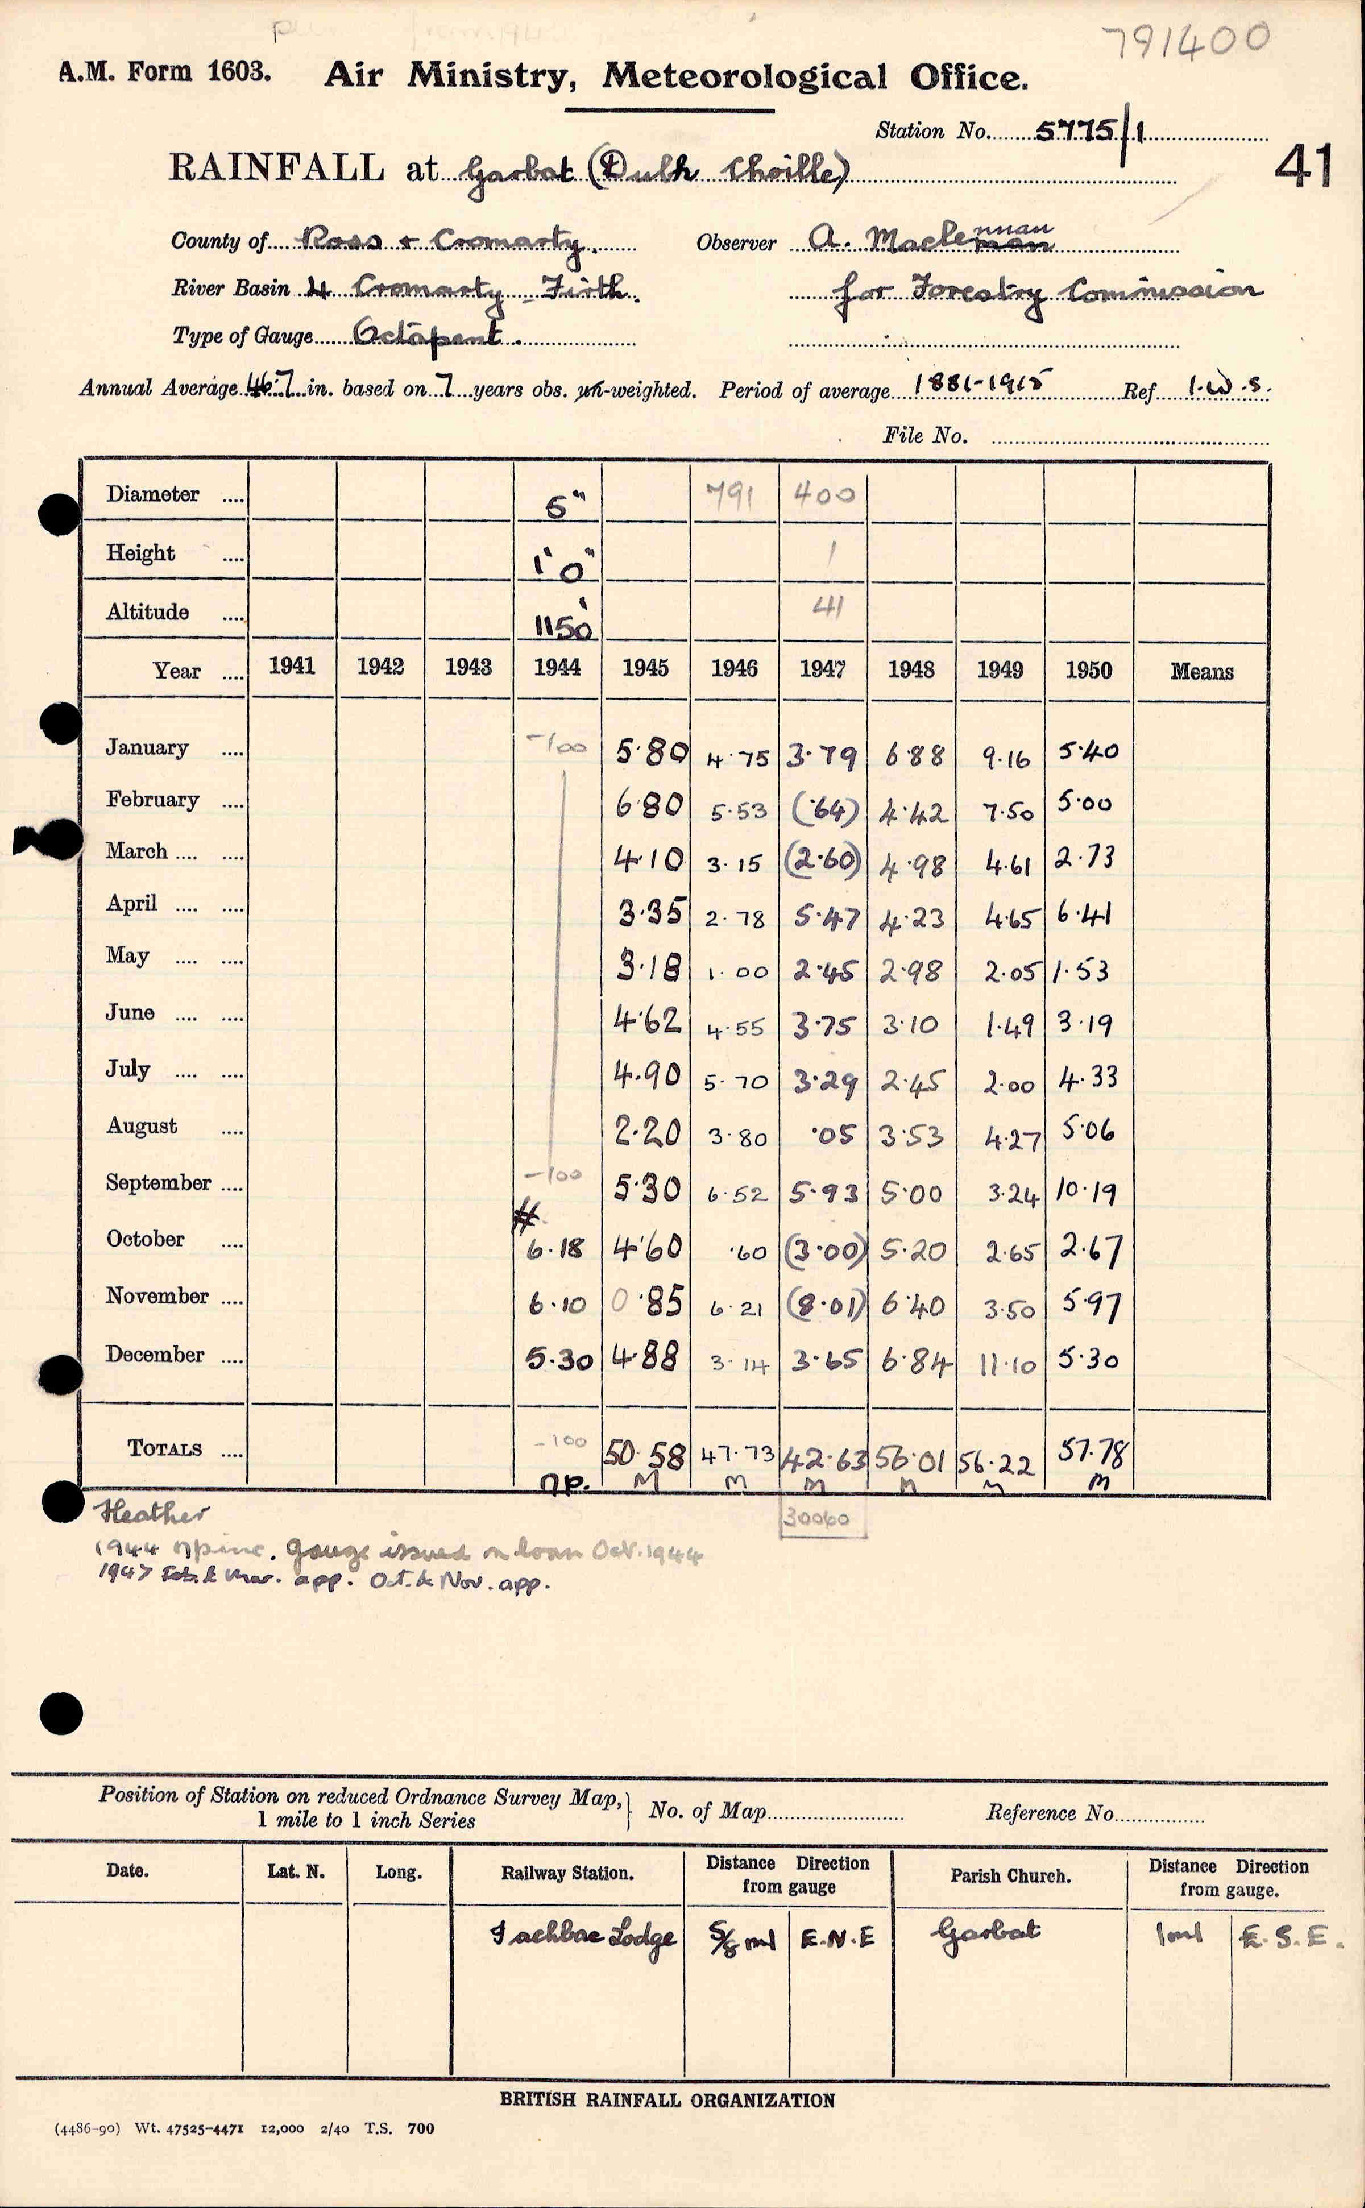 791400
A.M. Form 1603. Air Ministry, Meteorological Office.
Station No. 5775/1
41
RAINFALL at Garbat (Dubh Choille)
County of Ross + Cromarty. Observer A. Maclennan
River Basin 4 Cromarty Firth. for Forestry Commission
Type of Gauge Octapent.
Annual Average 46.7 in. based on 7 years obs. un-weighted. Period of average 1881-1915 Ref I.W.S.
File No.
Diameter .... 5" 791 400
Height .... 1' 0" 1
Altitude .... 1150' 41
Year .... 1941 1942 1943 1944 1945 1946 1947 1948 1949 1950 Means
January .... -100 5.80 4.75 3.79 6.88 9.16 5.40
February .... 6.80 5.53 (.64) 4.42 7.50 5.00
March .... .... 4.10 3.15 (2.60) 4.98 4.61 2.73
April .... .... 3.35 2.78 5.47 4.23 4.65 6.41
May .... .... 3.18 1.00 2.45 2.98 2.05 1.53
June .... .... 4.62 4.55 3.75 3.10 1.49 3.19
July .... .... 4.90 5.70 3.29 2.45 2.00 4.33
August .... 2.20 3.80 .05 3.53 4.27 5.06
September .... -100 5.30 6.52 5.93 5.00 3.24 10.19
#
October .... 6.18 4.60 .60 (3.00) 5.20 2.65 2.67
November .... 6.10 0.85 6.21 (8.01) 6.40 3.50 5.97
December .... 5.30 4.88 3.14 3.65 6.84 11.10 5.30
TOTALS .... -100 50.58 47.73 42.63 56.01 56.22 57.78
np. M M M M M M
Heather 30060
1944 npine. Gauge issued on loan Oct. 1944
1947 Feb. & Mar. app. Oct. & Nov. app.
Position of Station on reduced Ordnance Survey Map, } No. of Map Reference No.
1 mile to 1 inch Series
Date. Lat. N. Long. Railway Station. Distance Direction from gauge Parish Church. Distance Direction from gauge.
Lodge 5/8 ml E.N.E Garbat 1 ml E.S.E.
BRITISH RAINFALL ORGANIZATION
(4486-90) Wt. 47525-4471 12,000 2/40 T.S. 700